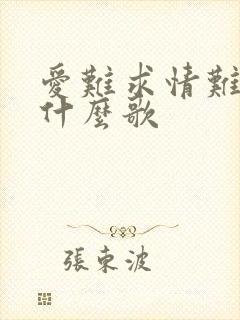 愛難求情難
什麼歌
張束波